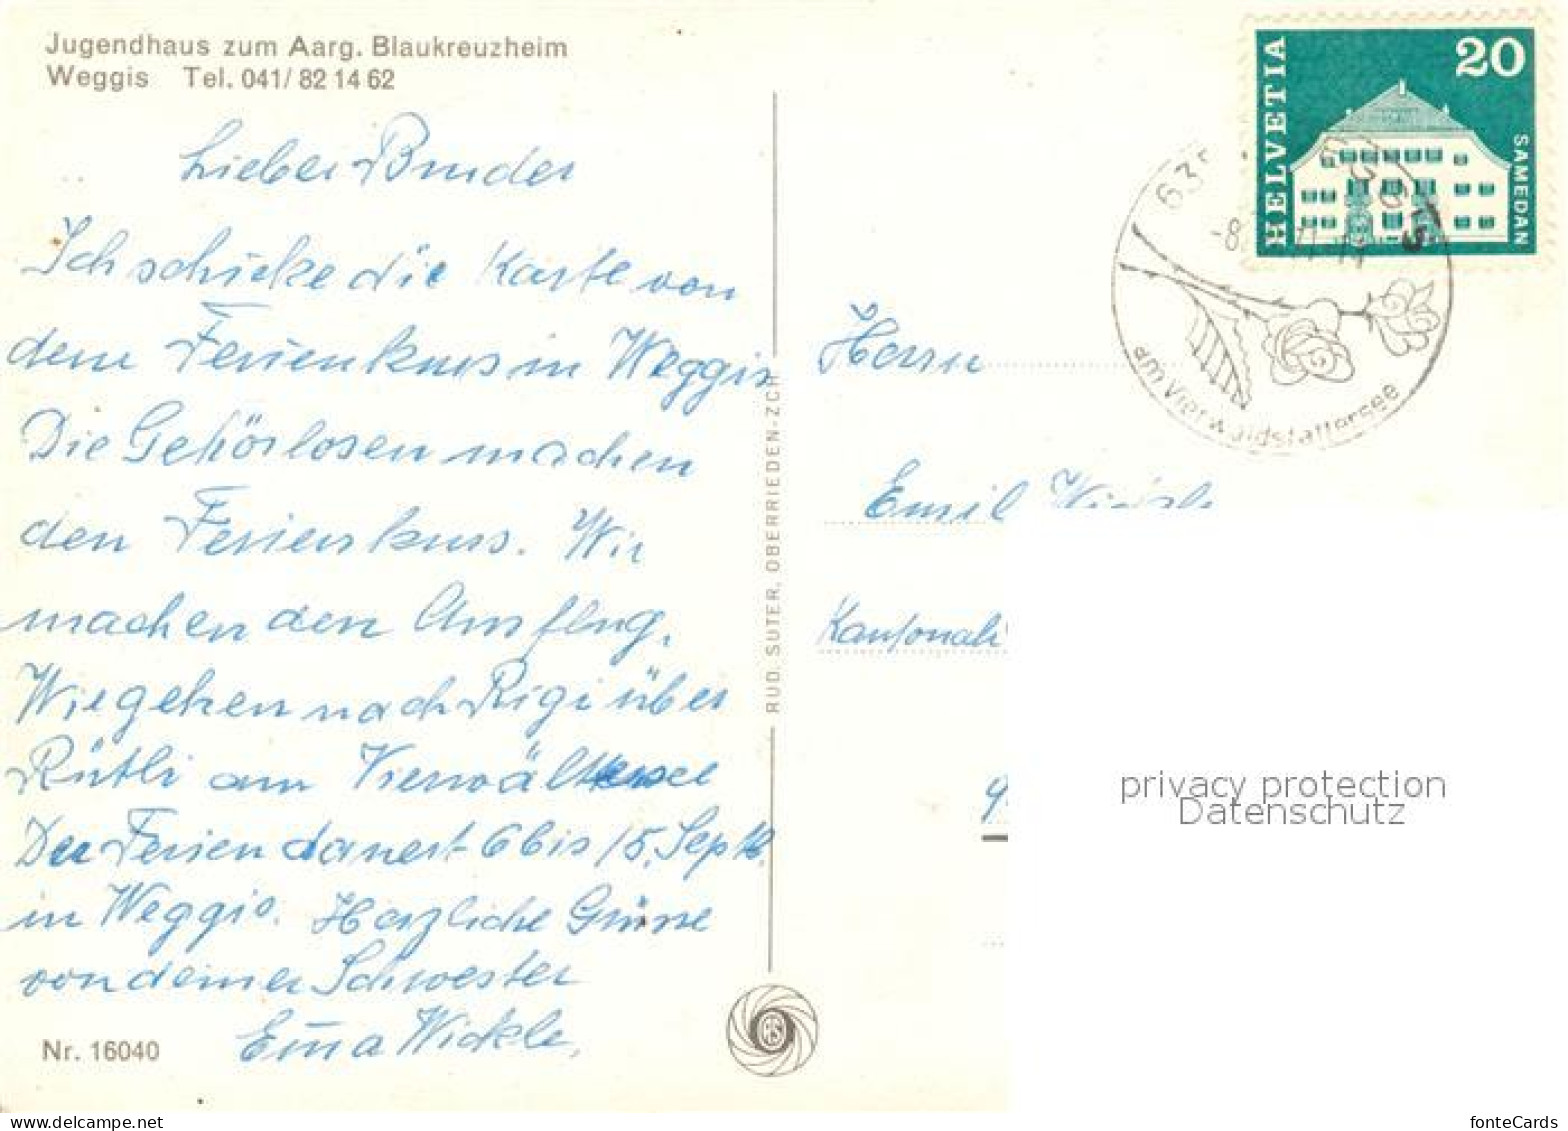 Jugendhaus zum Aarg. Blaukreuzheim
Weggis Tel. 041/ 82 14 62
Lieber Bruder
Ich schicke die Karte von
dem Ferienkurs in Weggis
Die Gehörlosen machen
den Ferienkurs. Wir
machen den Ausflug.
Wir gehen nach Rigi über
Rütli am
Die Ferien dauert 6 bis 15. Sept.
in Weggis. Herzliche Grüsse
von deiner Schwester
Emma Wickle.
Nr. 16040
RUD. SUTER, OBERRIEDEN-ZCH
HELVETIA
20
SAMEDAN
635
WEGGIS
-8.
am Vierwaldstättersee
Herrn
Emil Wickle
Kantonal
privacy protection
Datenschutz
https://www.delcampe.net
fonteCards